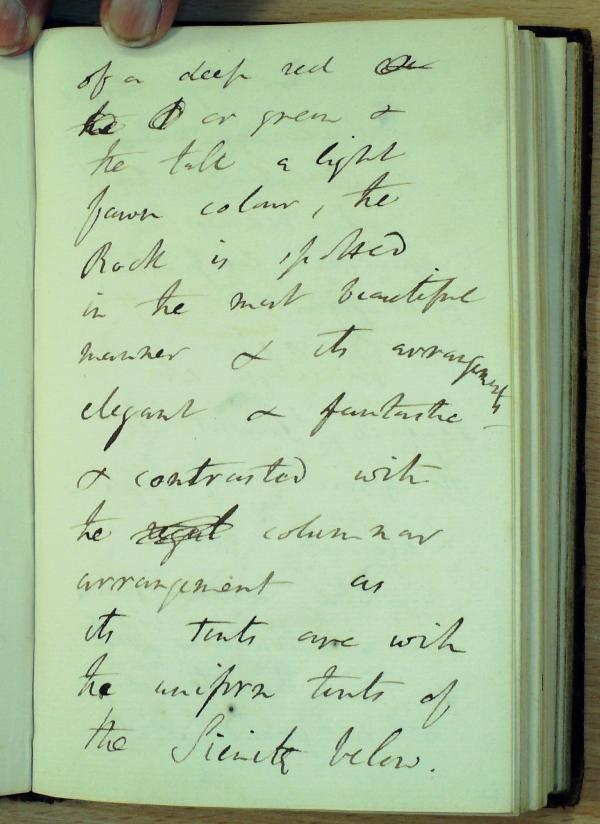 of a deep red
or green &
the talc a light
fawn colour, the
Rock is spotted
in the most beautiful
manner & its arrangements
elegant & fantastic
& contrasted with
the columnar
arrangement as
its tints are with
the uniform tints of
the Sienite below.